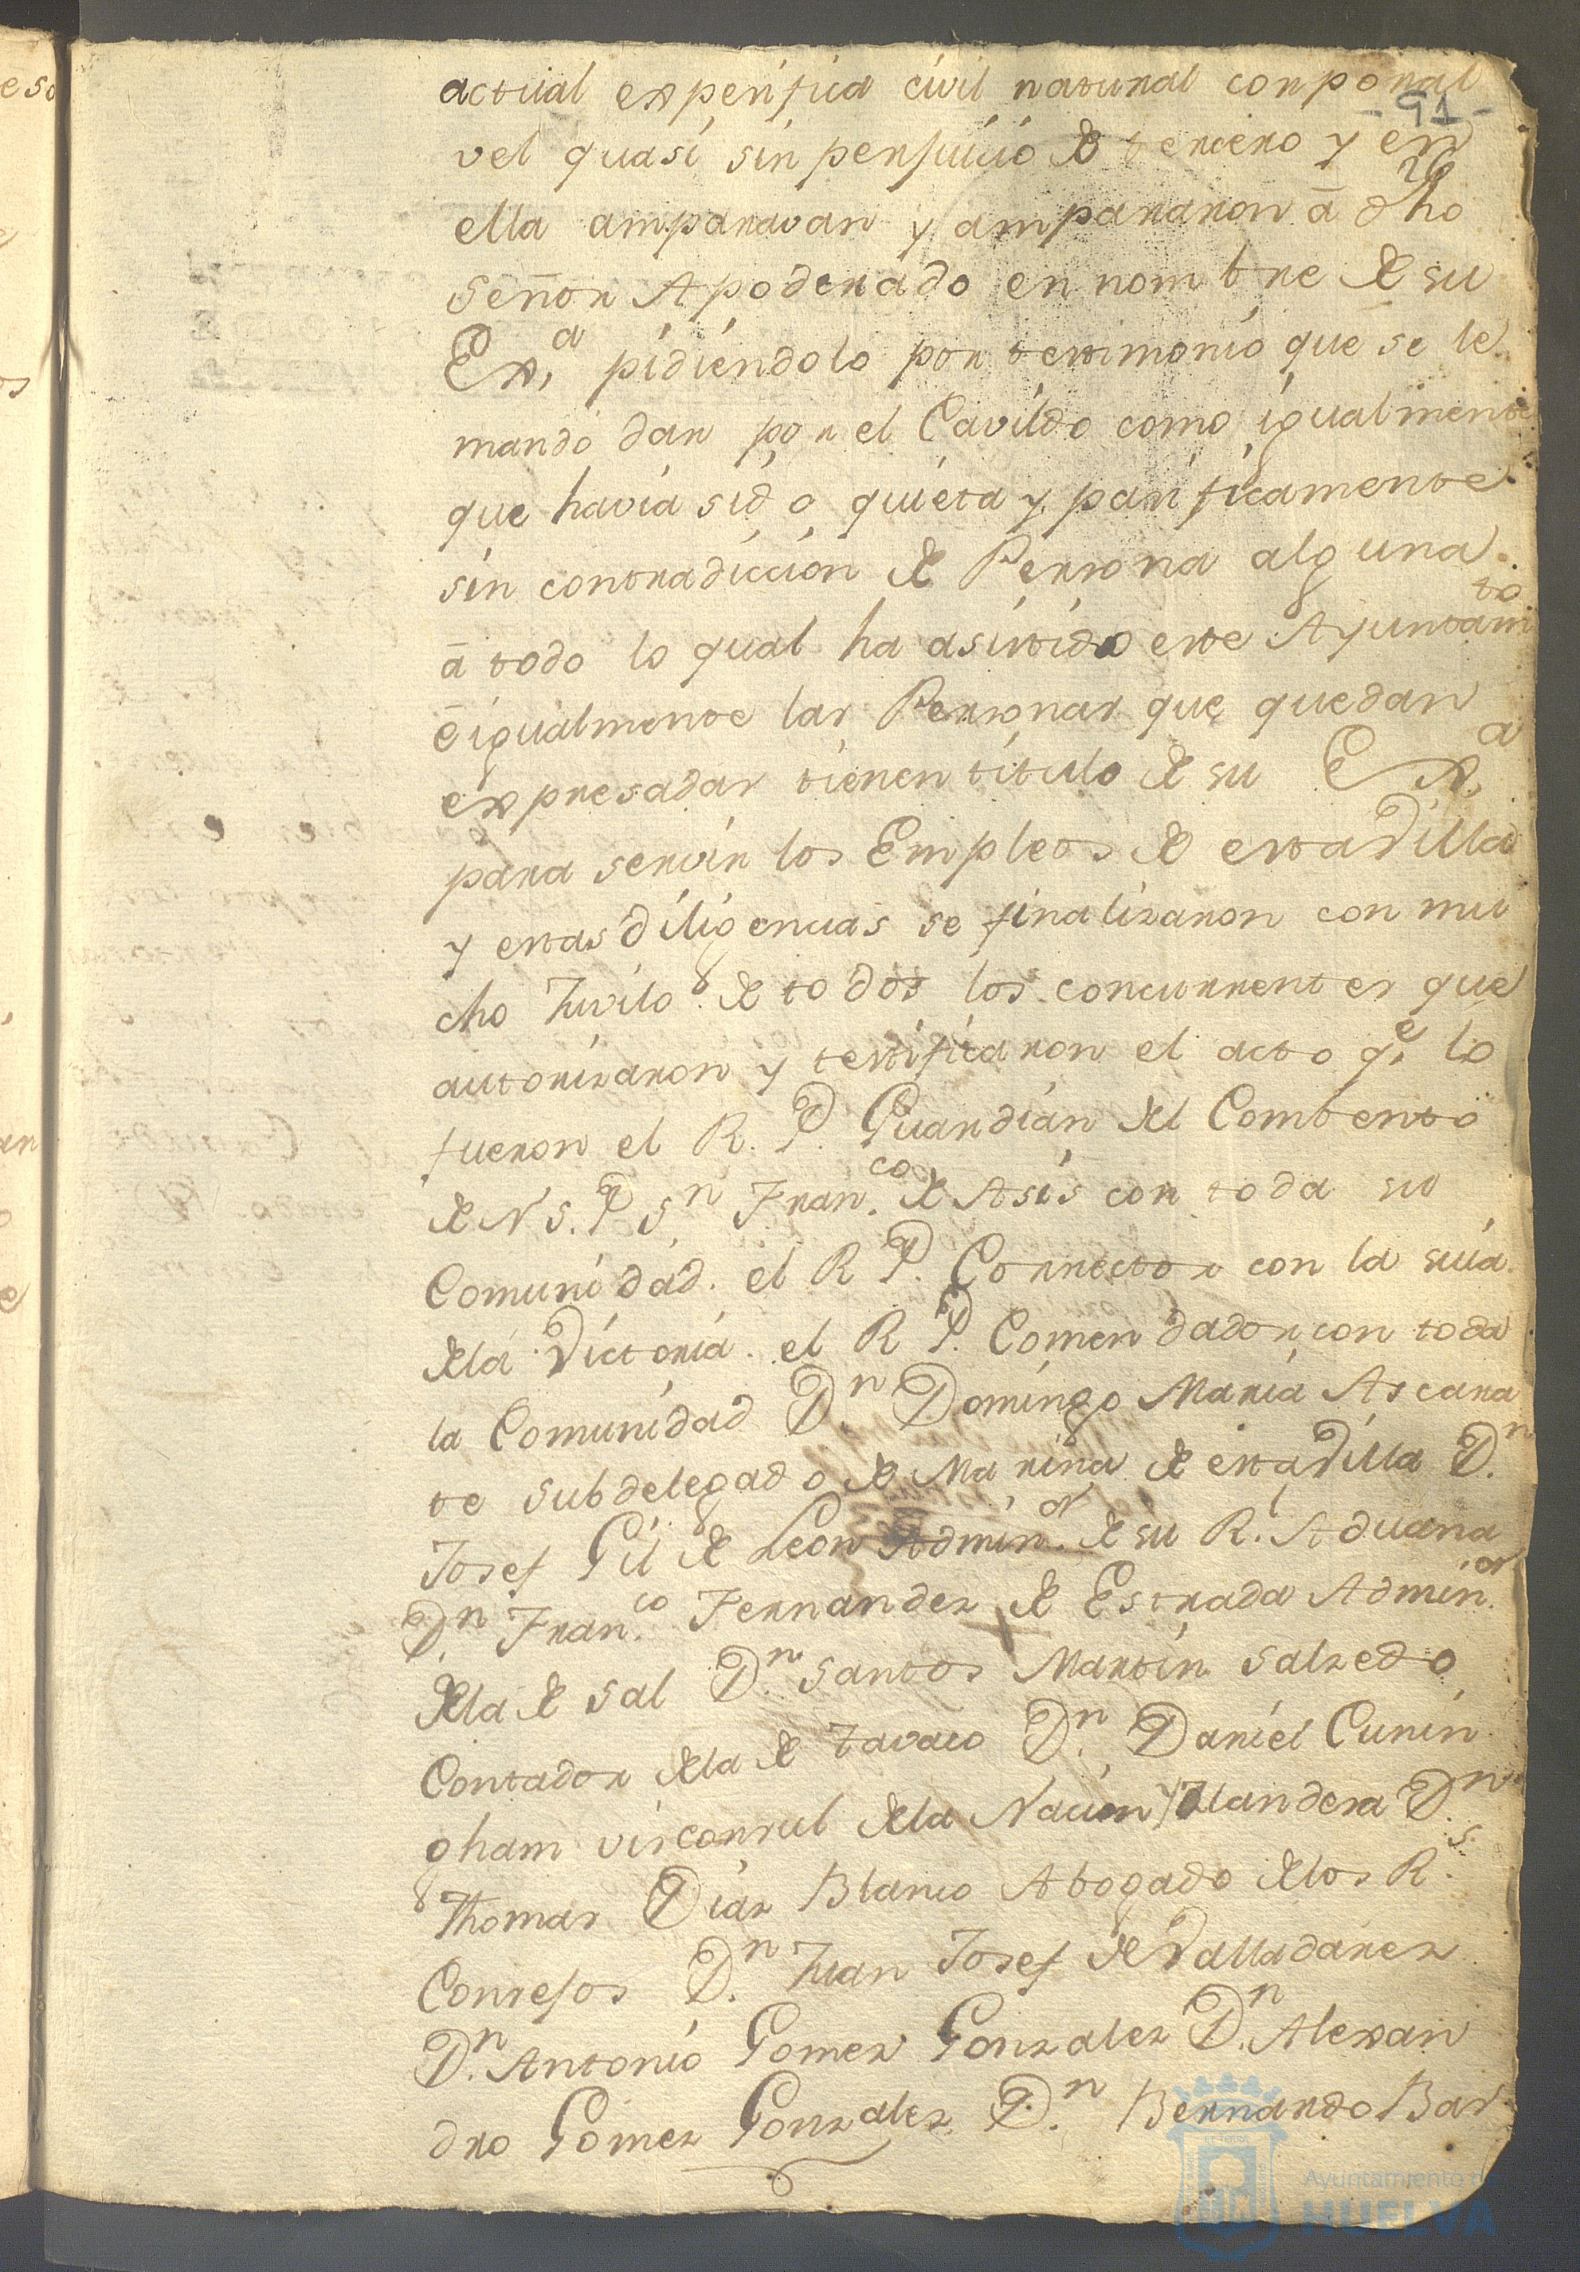 actual expecifica civil natural corporal
- 91 -
vel quasi sin perjuicio de tercero y en
ella amparavan y ampararon a dho
Señor Apoderado en nombre de su
Ex.a pidiendolo por testimonio que se le
mandó dar por el Cavildo como igualmente
que havia sido quieta y pacificamente
sin contradiccion de Persona alguna
a todo lo qual ha asistido este Ayuntamto
e igualmente las Personas que quedan
expresadas tienen titulo de su Ex.a
para servir los Empleos de esta Villa
y estas diligencias se finalizaron con mu
cho Juvilo de todos los concurrentes que
autorizaron y testificaron el acto q.e lo
fueron el R. P. Guardian del Combento
de N S. P. S.n Fran.co de Asis con toda su
Comunidad. el R P. Corrector con la suia
de la Victoria. el R P. Comendador con toda
la Comunidad D.n Domingo Maria Ascara
te subdelegado de Marina de esta Villa D.n
Josef Gil de Leon Admin.or de su R.l Aduana
D.n Fran.co Fernandez de Estrada Admin.or
de la de sal D.n Santos Martin Salzedo
Contador de la de tavaco D.n Daniel Cunin
gham visconsul de la Nacion Yrlandesa D.n
Thomas Diaz Blanco Abogado de los R.s
Consejos D.n Juan Josef de Valladares
D.n Antonio Gomez Gonzalez D.n Alexan
dro Gomez Gonzalez D.n Bernardo Bar
Ayuntamiento de
HUELVA